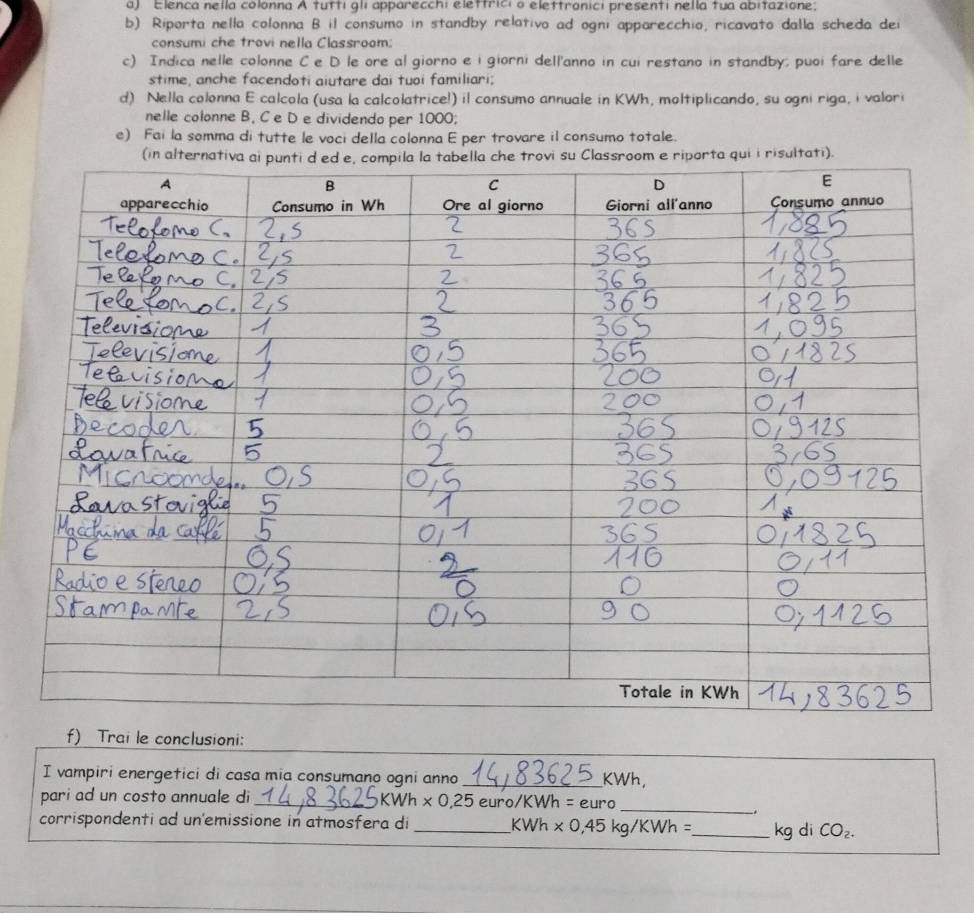 a) Elenca nella colonna A tutti gli apparecchi elettrici o elettronici presenti nella tua abitazione;
b) Riporta nella colonna B il consumo in standby relativo ad ogni apparecchio, ricavato dalla scheda dei
consumi che trovi nella Classroom;
c) Indica nelle colonne C e D le ore al giorno e i giorni dell'anno in cui restano in standby; puoi fare delle
stime, anche facendoti aiutare dai tuoi familiari;
d) Nella colonna E calcola (usa la calcolatrice!) il consumo annuale in KWh, moltiplicando, su ogni riga, i valori
nelle colonne B, C e D e dividendo per 1000;
e) Fai la somma di tutte le voci della colonna E per trovare il consumo totale.
(in alternativa ai punti d ed e, compila la tabella che trovi su Classroom e riporta qui i risultati).
A B C D E
apparecchio Consumo in Wh Ore al giorno Giorni all'anno Consumo annuo
Telefono C. 2,5 2 365 1,885
Telefono C. 2,5 2 365 1,825
Telefono C. 2,5 2 365 1,825
Telefono C. 2,5 2 365 1,825
Televisione 1 3 365 1,095
Televisione 1 0,5 365 0,1825
Televisione 1 0,5 200 0,1
Televisione 1 0,5 200 0,1
Decoder 5 0,5 365 0,9125
Lavatrice 5 2 365 3,65
Microonde... 0,5 0,5 365 0,09125
Lavastoviglie 5 1 200 1
Macchina da caffè 5 0,1 365 0,1825
PC 0,5 2 110 0,11
Radio e stereo 0,5 0 0 0
Stampante 2,5 0,5 90 0,1125
Totale in KWh 14,83625
f) Trai le conclusioni:
I vampiri energetici di casa mia consumano ogni anno 14,83625 KWh,
pari ad un costo annuale di 14,83625 KWh × 0,25 euro/KWh = euro ____________,
corrispondenti ad un'emissione in atmosfera di __________KWh × 0,45 kg/KWh =________ kg di CO₂.